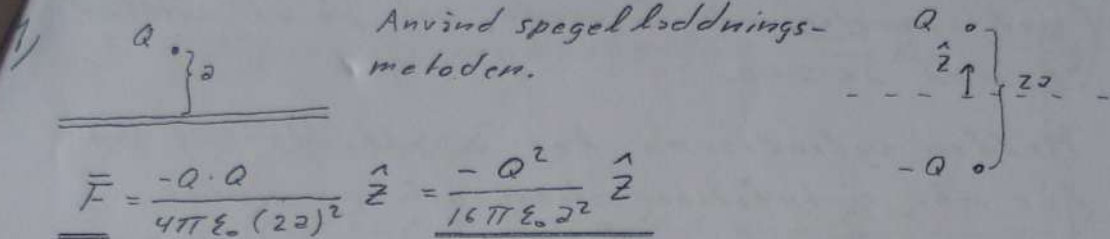 1)
Q
a
Använd spegelladdnings-
metoden.
Q
ẑ
2a
-Q
F̄ = -Q·Q / 4πε₀(2a)² ẑ = -Q² / 16πε₀a² ẑ